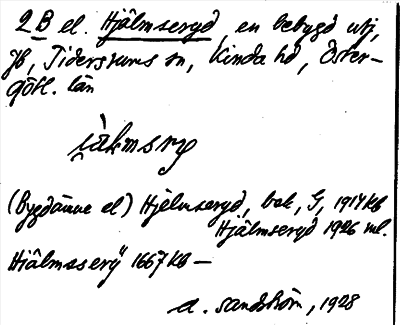 2 B el. Hjälmseryd, en bebygd utj,
Jb, Tidersrums sn, Kinda hd, Öster-
götl. län
jälmsry
(Bygdänne el) Hjälmseryd, bek, G, 1914 KB
Hjälmseryd 1926 ml.
Hiälmsserÿ 1667 KB —
A. Sandström, 1928